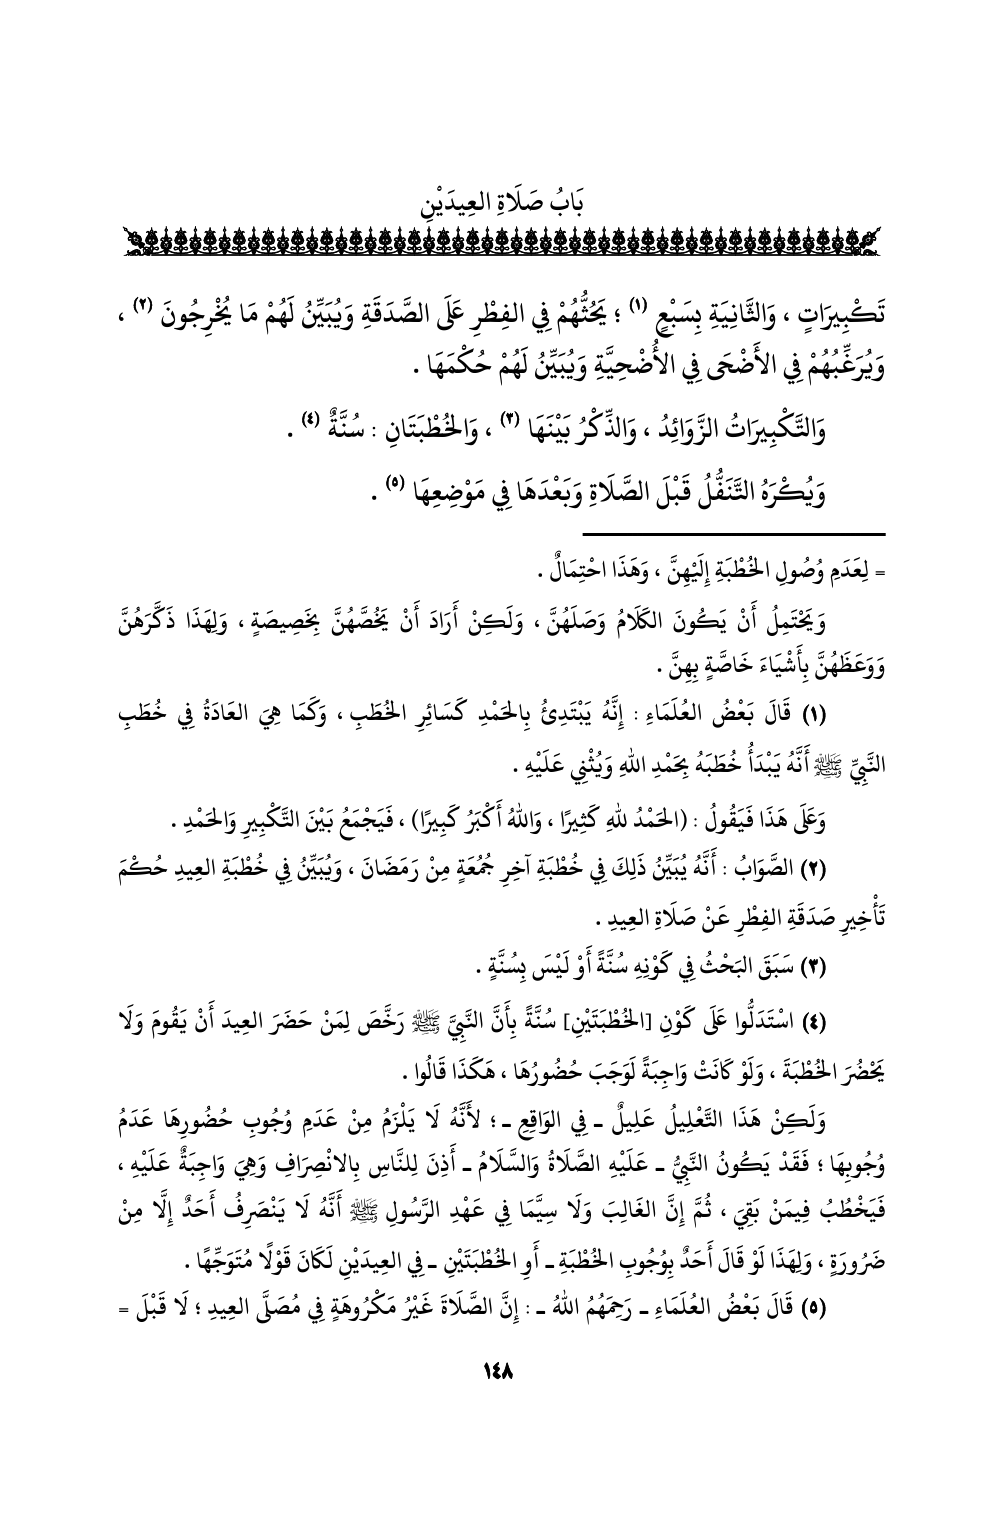 بَابُ صَلَاةِ العِيدَيْنِ
تَكْبِيرَاتٍ ، وَالثَّانِيَةِ بِسَبْعٍ (١) ؛ يَحُثُّهُمْ فِي الفِطْرِ عَلَى الصَّدَقَةِ وَيُبَيِّنُ لَهُمْ مَا يُخْرِجُونَ (٢) ،
وَيُرَغِّبُهُمْ فِي الأَضْحَى فِي الأُضْحِيَّةِ وَيُبَيِّنُ لَهُمْ حُكْمَهَا .
وَالتَّكْبِيرَاتُ الزَّوَائِدُ ، وَالذِّكْرُ بَيْنَهَا (٣) ، وَالخُطْبَتَانِ : سُنَّةٌ (٤) .
وَيُكْرَهُ التَّنَفُّلُ قَبْلَ الصَّلَاةِ وَبَعْدَهَا فِي مَوْضِعِهَا (٥) .
= لِعَدَمِ وُصُولِ الخُطْبَةِ إِلَيْهِنَّ ، وَهَذَا احْتِمَالٌ .
وَيَحْتَمِلُ أَنْ يَكُونَ الكَلَامُ وَصَلَهُنَّ ، وَلَكِنْ أَرَادَ أَنْ يَخُصَّهُنَّ بِخَصِيصَةٍ ، وَلِهَذَا ذَكَّرَهُنَّ
وَوَعَظَهُنَّ بِأَشْيَاءَ خَاصَّةٍ بِهِنَّ .
(١) قَالَ بَعْضُ العُلَمَاءِ : إِنَّهُ يَبْتَدِئُ بِالحَمْدِ كَسَائِرِ الخُطَبِ ، وَكَمَا هِيَ العَادَةُ فِي خُطَبِ
النَّبِيِّ ﷺ أَنَّهُ يَبْدَأُ خُطَبَهُ بِحَمْدِ اللهِ وَيُثْنِي عَلَيْهِ .
وَعَلَى هَذَا فَيَقُولُ : (الحَمْدُ للهِ كَثِيرًا ، وَاللهُ أَكْبَرُ كَبِيرًا) ، فَيَجْمَعُ بَيْنَ التَّكْبِيرِ وَالحَمْدِ .
(٢) الصَّوَابُ : أَنَّهُ يُبَيِّنُ ذَلِكَ فِي خُطْبَةِ آخِرِ جُمُعَةٍ مِنْ رَمَضَانَ ، وَيُبَيِّنُ فِي خُطْبَةِ العِيدِ حُكْمَ
تَأْخِيرِ صَدَقَةِ الفِطْرِ عَنْ صَلَاةِ العِيدِ .
(٣) سَبَقَ البَحْثُ فِي كَوْنِهِ سُنَّةً أَوْ لَيْسَ بِسُنَّةٍ .
(٤) اسْتَدَلُّوا عَلَى كَوْنِ [الخُطْبَتَيْنِ] سُنَّةً بِأَنَّ النَّبِيَّ ﷺ رَخَّصَ لِمَنْ حَضَرَ العِيدَ أَنْ يَقُومَ وَلَا
يَحْضُرَ الخُطْبَةَ ، وَلَوْ كَانَتْ وَاجِبَةً لَوَجَبَ حُضُورُهَا ، هَكَذَا قَالُوا .
وَلَكِنْ هَذَا التَّعْلِيلُ عَلِيلٌ ـ فِي الوَاقِعِ ـ ؛ لأَنَّهُ لَا يَلْزَمُ مِنْ عَدَمِ وُجُوبِ حُضُورِهَا عَدَمُ
وُجُوبِهَا ؛ فَقَدْ يَكُونُ النَّبِيُّ ـ عَلَيْهِ الصَّلَاةُ وَالسَّلَامُ ـ أَذِنَ لِلنَّاسِ بِالانْصِرَافِ وَهِيَ وَاجِبَةٌ عَلَيْهِ ،
فَيَخْطُبُ فِيمَنْ بَقِيَ ، ثُمَّ إِنَّ الغَالِبَ وَلَا سِيَّمَا فِي عَهْدِ الرَّسُولِ ﷺ أَنَّهُ لَا يَنْصَرِفُ أَحَدٌ إِلَّا مِنْ
ضَرُورَةٍ ، وَلِهَذَا لَوْ قَالَ أَحَدٌ بِوُجُوبِ الخُطْبَةِ ـ أَوِ الخُطْبَتَيْنِ ـ فِي العِيدَيْنِ لَكَانَ قَوْلًا مُتَوَجِّهًا .
(٥) قَالَ بَعْضُ العُلَمَاءِ ـ رَحِمَهُمُ اللهُ ـ : إِنَّ الصَّلَاةَ غَيْرُ مَكْرُوهَةٍ فِي مُصَلَّى العِيدِ ؛ لَا قَبْلَ =
١٤٨